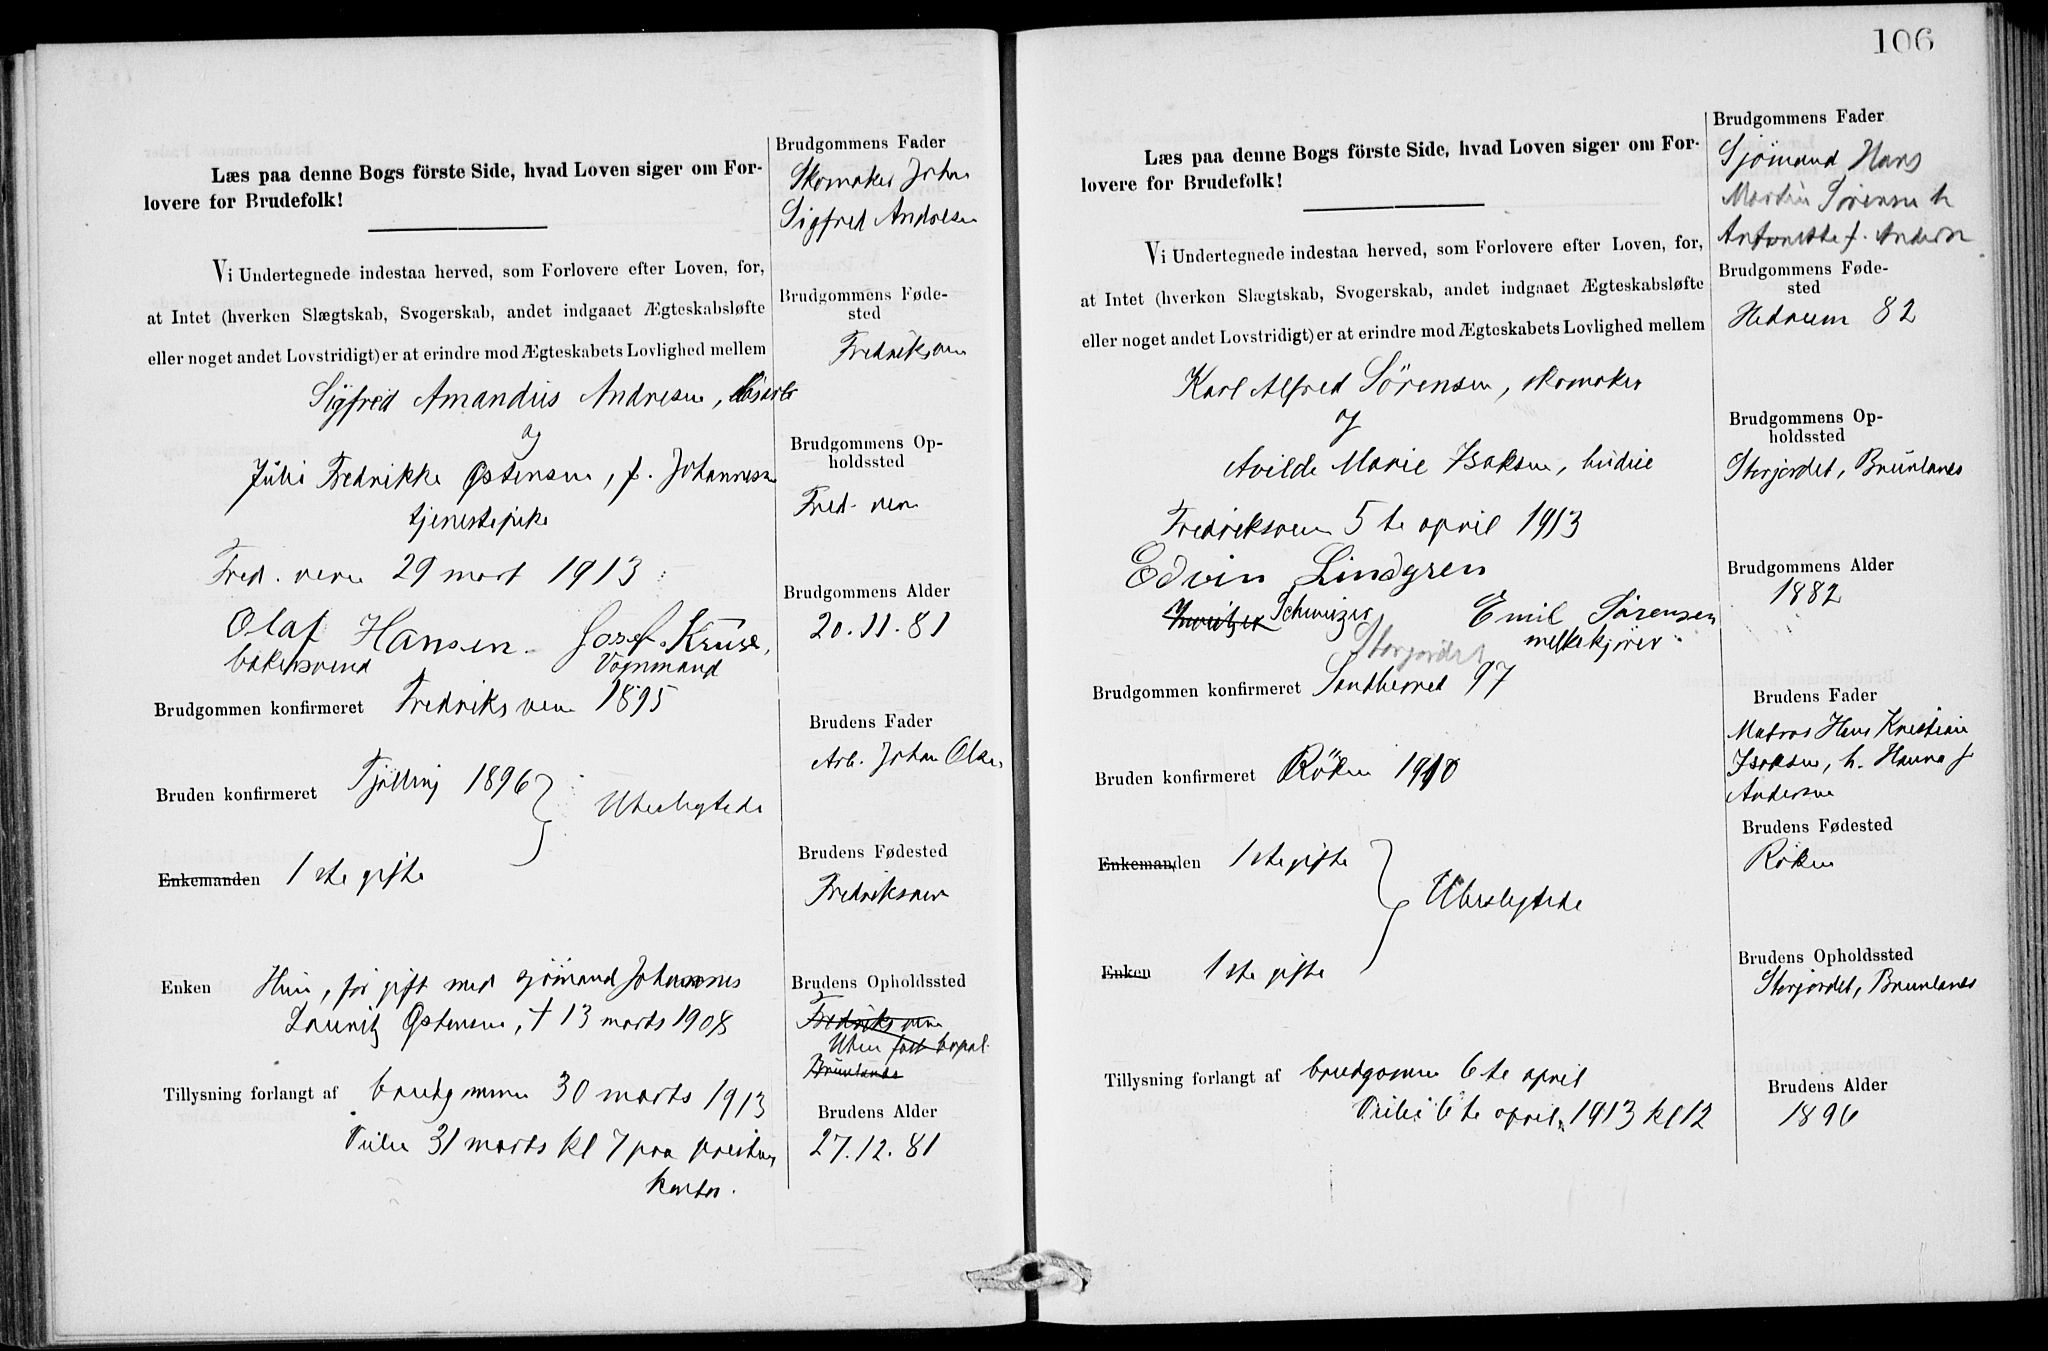 Læs paa denne Bogs förste Side, hvad Loven siger om For-
lovere for Brudefolk!
Vi Undertegnede indestaa herved, som Forlovere efter Loven, for,
at Intet (hverken Slægtskab, Svogerskab, andet indgaaet Ægteskabsløfte
eller noget andet Lovstridigt) er at erindre mod Ægteskabets Lovlighed mellem
Sigfred Amandus Andresen,
og
Julie Fredrikke Østensen, f. Johannesen
tjenestepike
Fred. vern 29 mart 1913
Olaf Hansen. Josef Kruse,
bakersvend Vognmand
Brudgommen konfirmeret Fredriksvern 1895
Bruden konfirmeret Tjölling 1896
Ubeslegtede
Enkemanden 1ste gifte
Enken Hun, før gift med sjömand Johannes
Lauritz Østensen, † 13 marts 1908
Tillysning forlangt af brudgommen 30 marts 1913
Vielse 31 marts kl 7 paa prestens
kontor.
Brudgommens Fader
Skomaker Johan
Sigfred Andresen
Brudgommens Føde-
sted
Fredriksvern
Brudgommens Op-
holdssted
Fred. vern
Brudgommens Alder
20.11.81
Brudens Fader
Arb. Johan Olsen
Brudens Fødested
Fredriksvern
Brudens Opholdssted
Fredriksvern
Uten fast bopæl
Brunlanes
Brudens Alder
27.12.81
106
Læs paa denne Bogs förste Side, hvad Loven siger om For-
lovere for Brudefolk!
Vi Undertegnede indestaa herved, som Forlovere efter Loven, for,
at Intet (hverken Slægtskab, Svogerskab, andet indgaaet Ægteskabsløfte
eller noget andet Lovstridigt) er at erindre mod Ægteskabets Lovlighed mellem
Karl Alfred Sørensen, skomaker
og
Avilde Marie Isaksen, budeie
Fredriksvern 5te april 1913
Edvin Lindgren
Schweizer Emil Sørensen
Storjordet melkekjører
Brudgommen konfirmeret Sandherred 97
Bruden konfirmeret Röken 1910
Enkemanden 1ste gifte
Ubeslegtede
Enken 1ste gifte
Tillysning forlangt af brudgommen 6te april
Vielse 6te april 1913 kl 12
Brudgommens Fader
Sjömand Hans
Martin Sørensen h
Antonette f. Andersen
Brudgommens Føde-
sted
Hedrum 82
Brudgommens Op-
holdssted
Storjordet, Brunlanes
Brudgommens Alder
1882
Brudens Fader
Matros Hans Kristian
Isaksen, h. Hanna f
Andersen
Brudens Fødested
Röken
Brudens Opholdssted
Storjordet, Brunlanes
Brudens Alder
1896